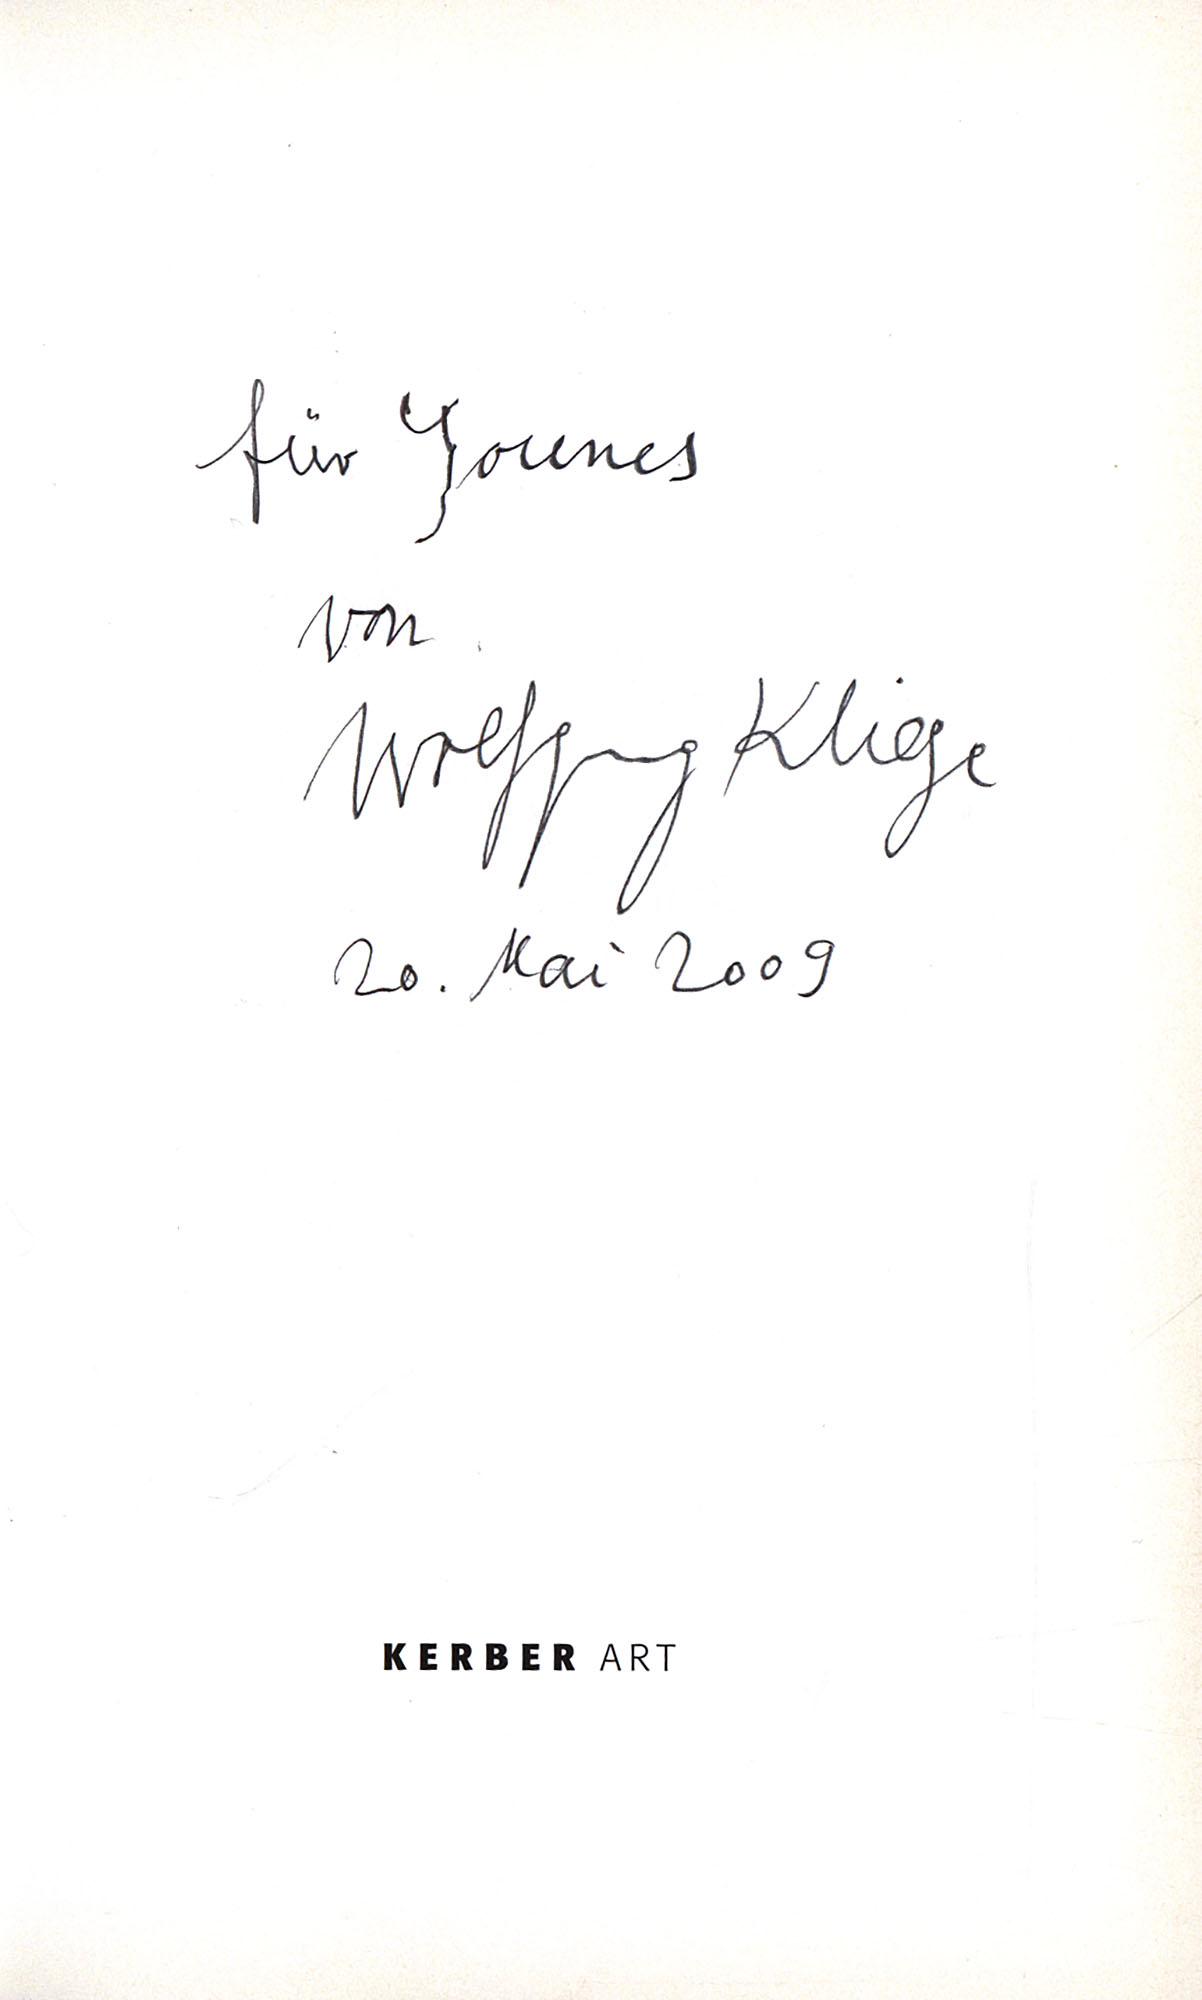 für Younes
von
Wolfgang Kliege
20. Mai 2009
KERBER ART